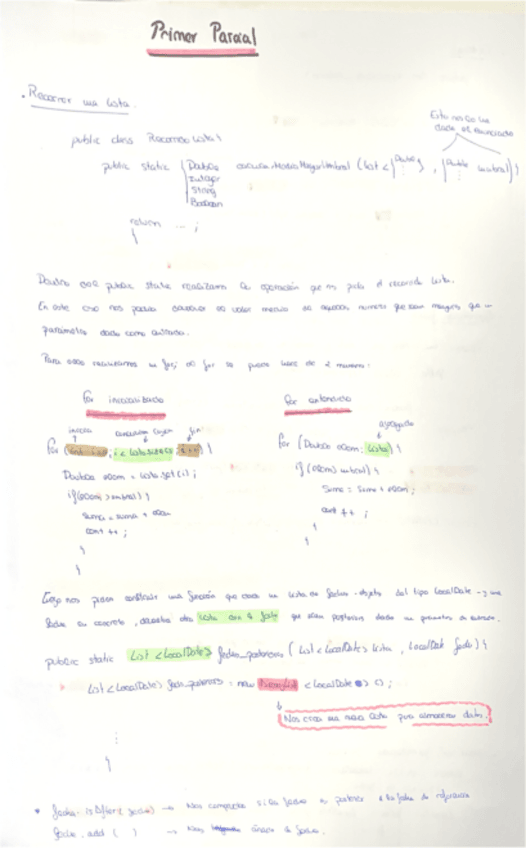 Primer Parcial
• Recorrer una lista.
public class RecorridoLista {
Esto nos lo
dado el enunciado
public static { Double (List < { Double } , { Double umbral) {
Integer
String
Boolean
return ... ;
}
Dentro del public static realizamos la operación que nos pida el recorrido lista.
En este caso nos pedían devolver el valor medio de aquellos numeros que sean mayores que un
parámetro dado como entrada.
Para ello realizamos un for; el for se puede hacer de 2 maneras:
for inicializado
for extendido
inicio fin
agregado
for ( int i=0 ; i < lista.size() ; i++ ) {
Double elem = lista.get(i);
if(elem > umbral) {
suma = suma + elem
cont ++ ;
}
}
for (Double elem : lista) {
if (elem > umbral) {
suma = suma + elem;
cont ++ ;
}
}
Luego nos piden construir una función que dada una lista de fechas - objetos del tipo LocalDate - y una
fecha en concreto, devuelva otra lista con las fechas que sean posteriores dada un parametro de entrada.
public static List <LocalDate> fechas_posteriores ( List <LocalDate> lista , LocalDate fecha) {
List <LocalDate> fechas_posteriores = new ArrayList <LocalDate> ();
Nos crea una nueva lista para almacenar datos.
⋮
}
* fecha.isAfter( fecha) → Nos comprueba si la fecha es posterior a la fecha de referencia
fecha.add ( ) → Nos añade la fecha.